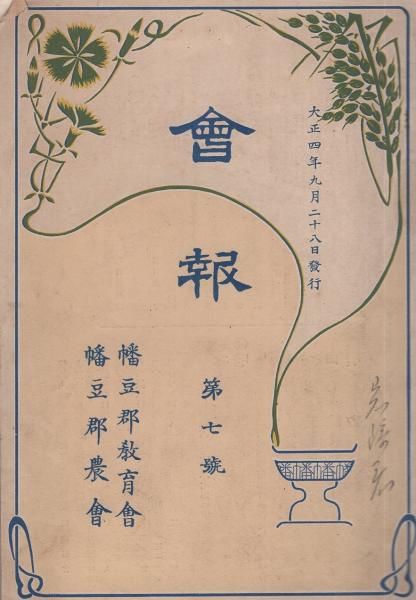 大正四年九月二十八日發行
會報
第七號
幡豆郡教育會
幡豆郡農會